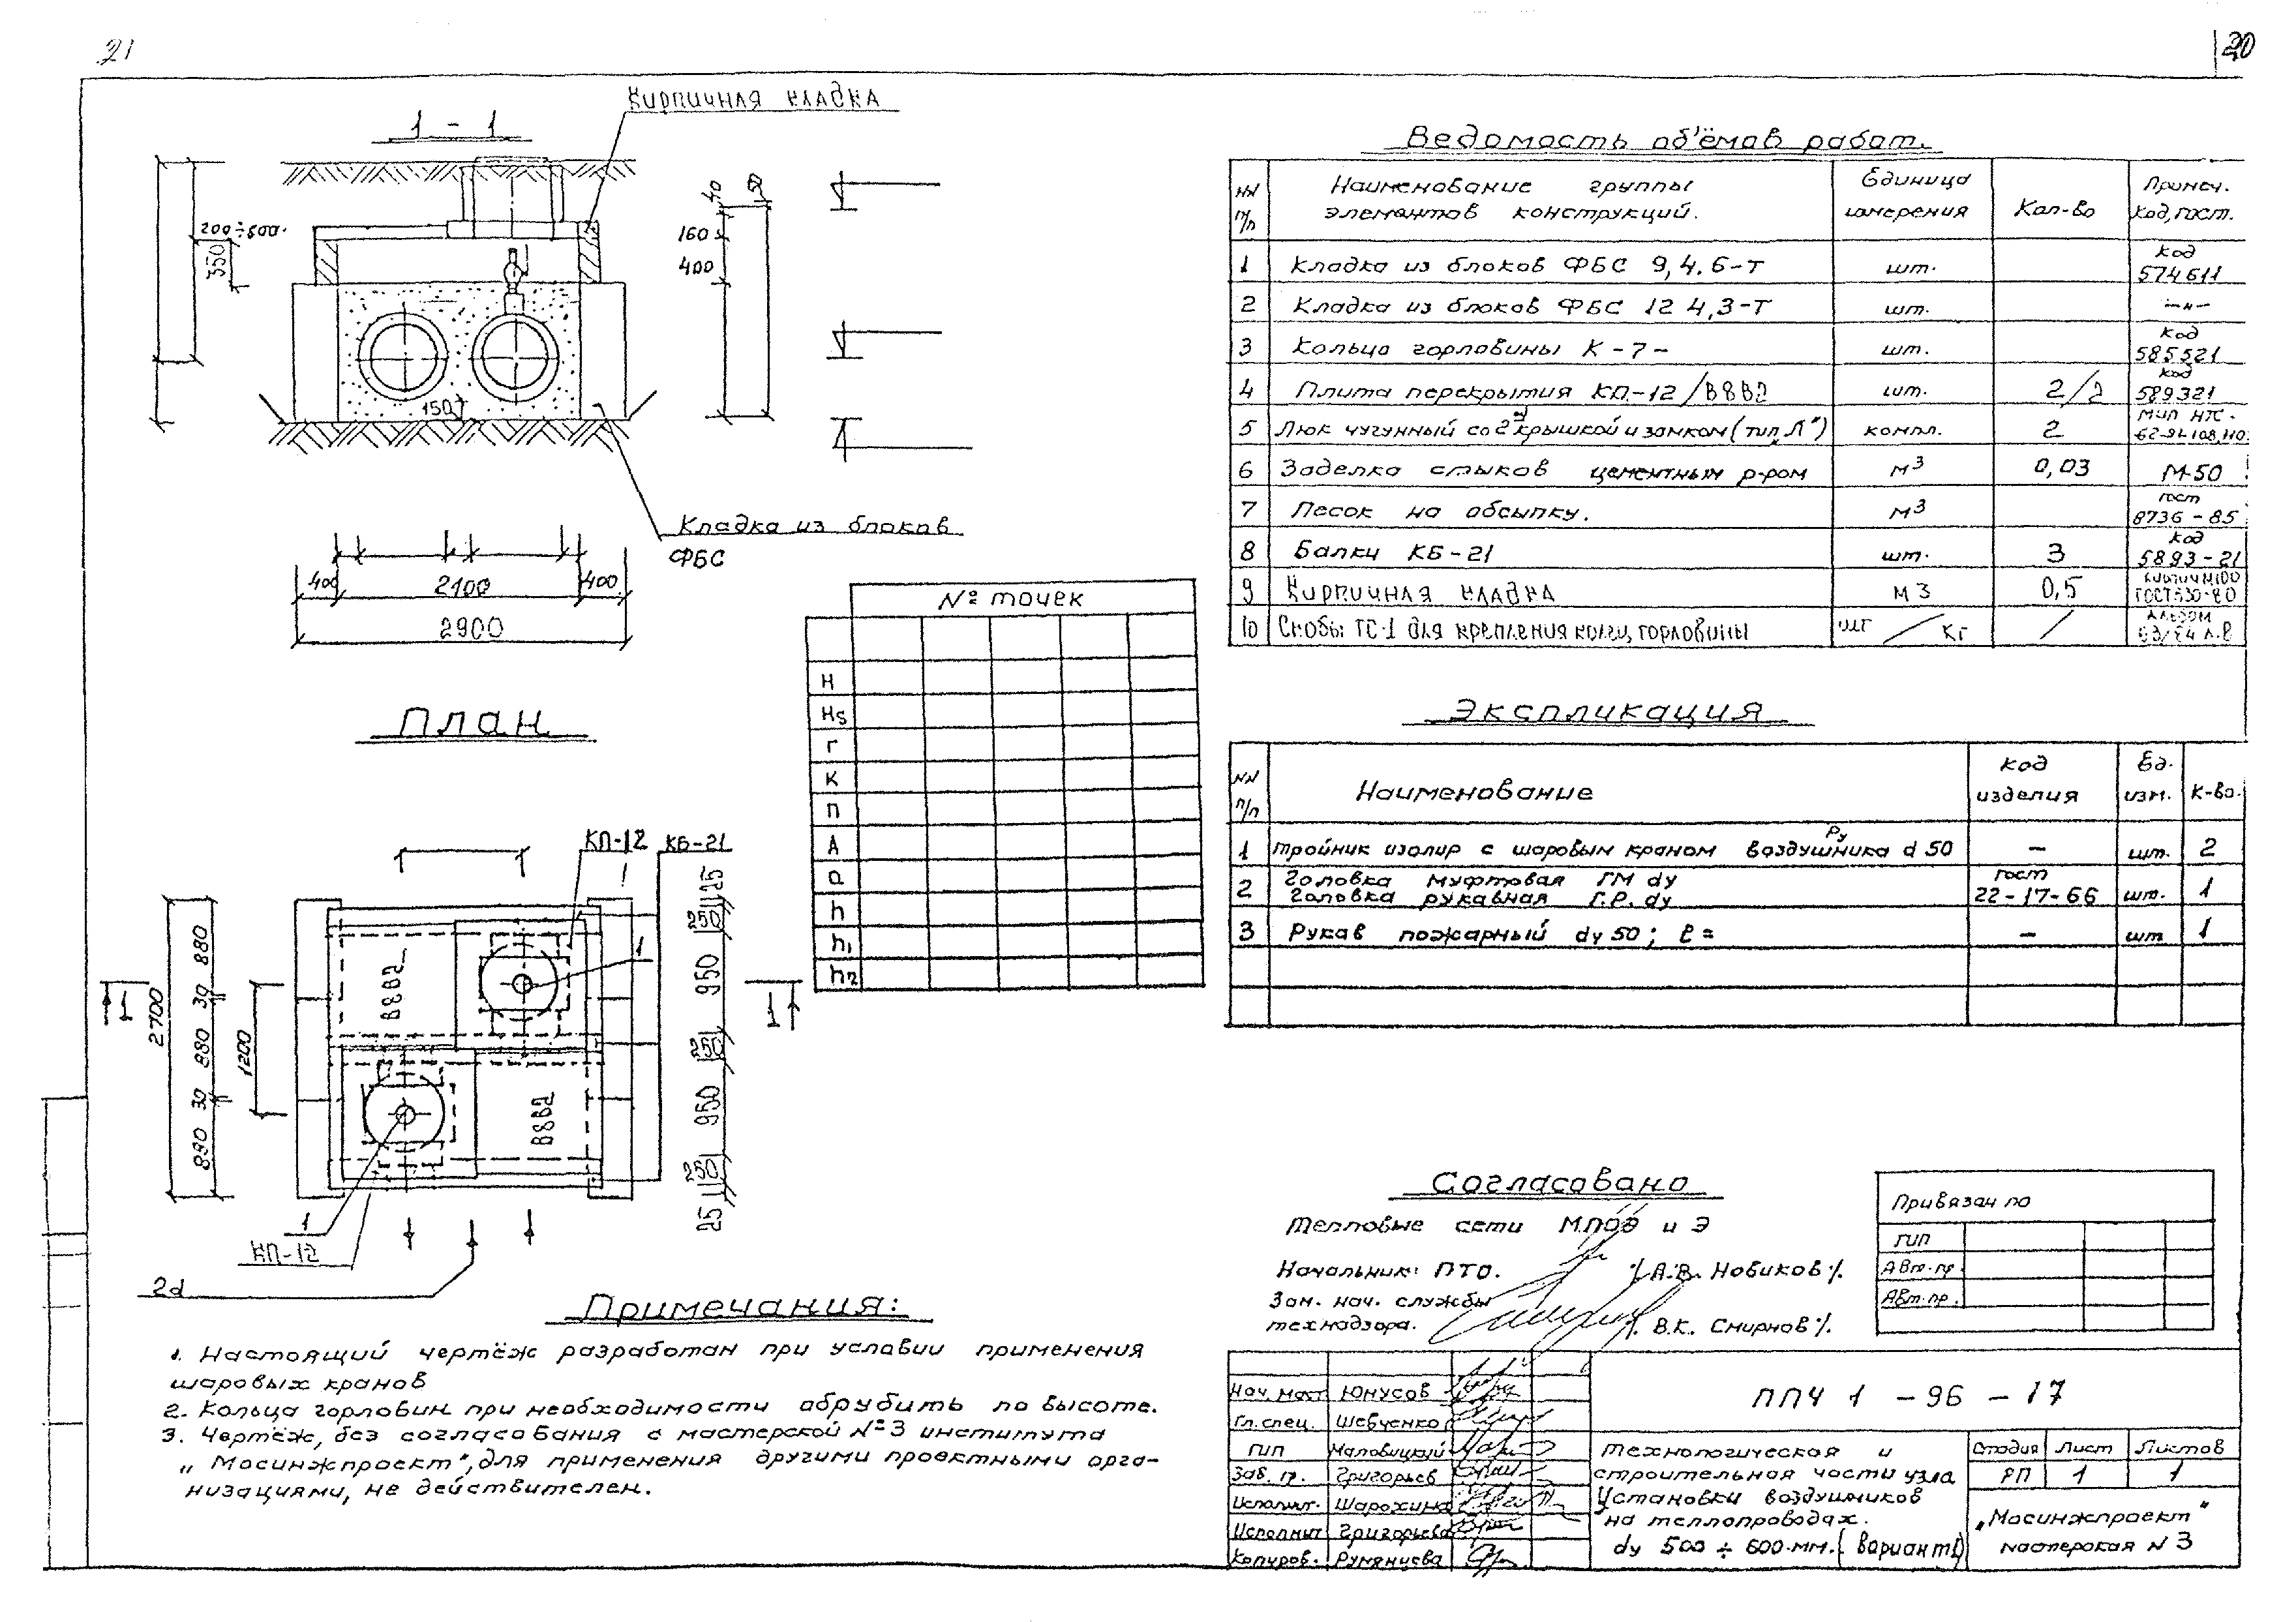 21
20
1 - 1
Кирпичная кладка
200÷500
350
40
160
400
150
Кладка из блоков
ФБС
400 2100 400
2900
План
КП-12 КБ-21
2700
880 30 880 30 890
1200
25 250 950 250 950 250 25
В8В2
В8В2
1
1
1
1
КП-12
2d
№ точек
Н
Нs
Г
К
П
А
а
h
h1
h2
Ведомость об'ёмов работ.
NN п/п Наименование группы элементов конструкций. Единица измерения Кол-во Примеч. Код, гост.
1 Кладка из блоков ФБС 9,4.6-Т шт. код 574611
2 Кладка из блоков ФБС 12 4,3-Т шт. —"—
3 Кольца горловины К-7- шт. код 585521
4 Плита перекрытия КП-12/В8В2 шт. 2/2 код 589321
5 Люк чугунный со 2й крышкой и замком (тип „Л") компл. 2
6 Заделка стыков цементным р-ром м3 0,03 М-50
7 Песок на обсыпку. м3 гост 8736-85
8 Балки КБ-21 шт. 3 код 5893-21
9 Кирпичная кладка м3 0,5 кирпич М100 ГОСТ 530-80
10 Скобы ТС-1 для крепления колец горловины шт/кг / Альбом
Экспликация
NN п/п Наименование Код изделия Ед. изм. К-во.
1 тройник изолир с шаровым краном воздушника Ру d 50 — шт. 2
2 Головка муфтовая ГМ dy
Головка рукавная Г.Р. dy гост 22-17-66 шт. 1
3 Рукав пожарный dy 50; ℓ= — шт 1
Согласовано
Тепловые сети МПОЭ и Э
Начальник ПТО. /А.В. Новиков/.
Зам. нач. службы
технадзора. /. В.К. Смирнов/.
Привязан по
ГИП
Авт.пр.
Авт.пр.
Примечания:
1. Настоящий чертёж разработан при условии применения
шаровых кранов
2. Кольца горловин при необходимости обрубить по высоте.
3. Чертёж, без согласования с мастерской №3 института
„Мосинжпроект", для применения другими проектными орга-
низациями, не действителен.
Нач. маст Юнусов
Гл. спец. Шевченко
ГИП Маловицкий
Зав. гр. Григорьев
Исполнит. Шарохина
Исполнит Григорьева
Копиров. Румянцева
ППЧ 1 - 96 - 17
Технологическая и
строительная части узла
Установки воздушников
на теплопроводах.
dy 500 ÷ 600 мм. (вариант 1)
Стадия Лист Листов
РП 1 1
„Мосинжпроект"
мастерская N 3